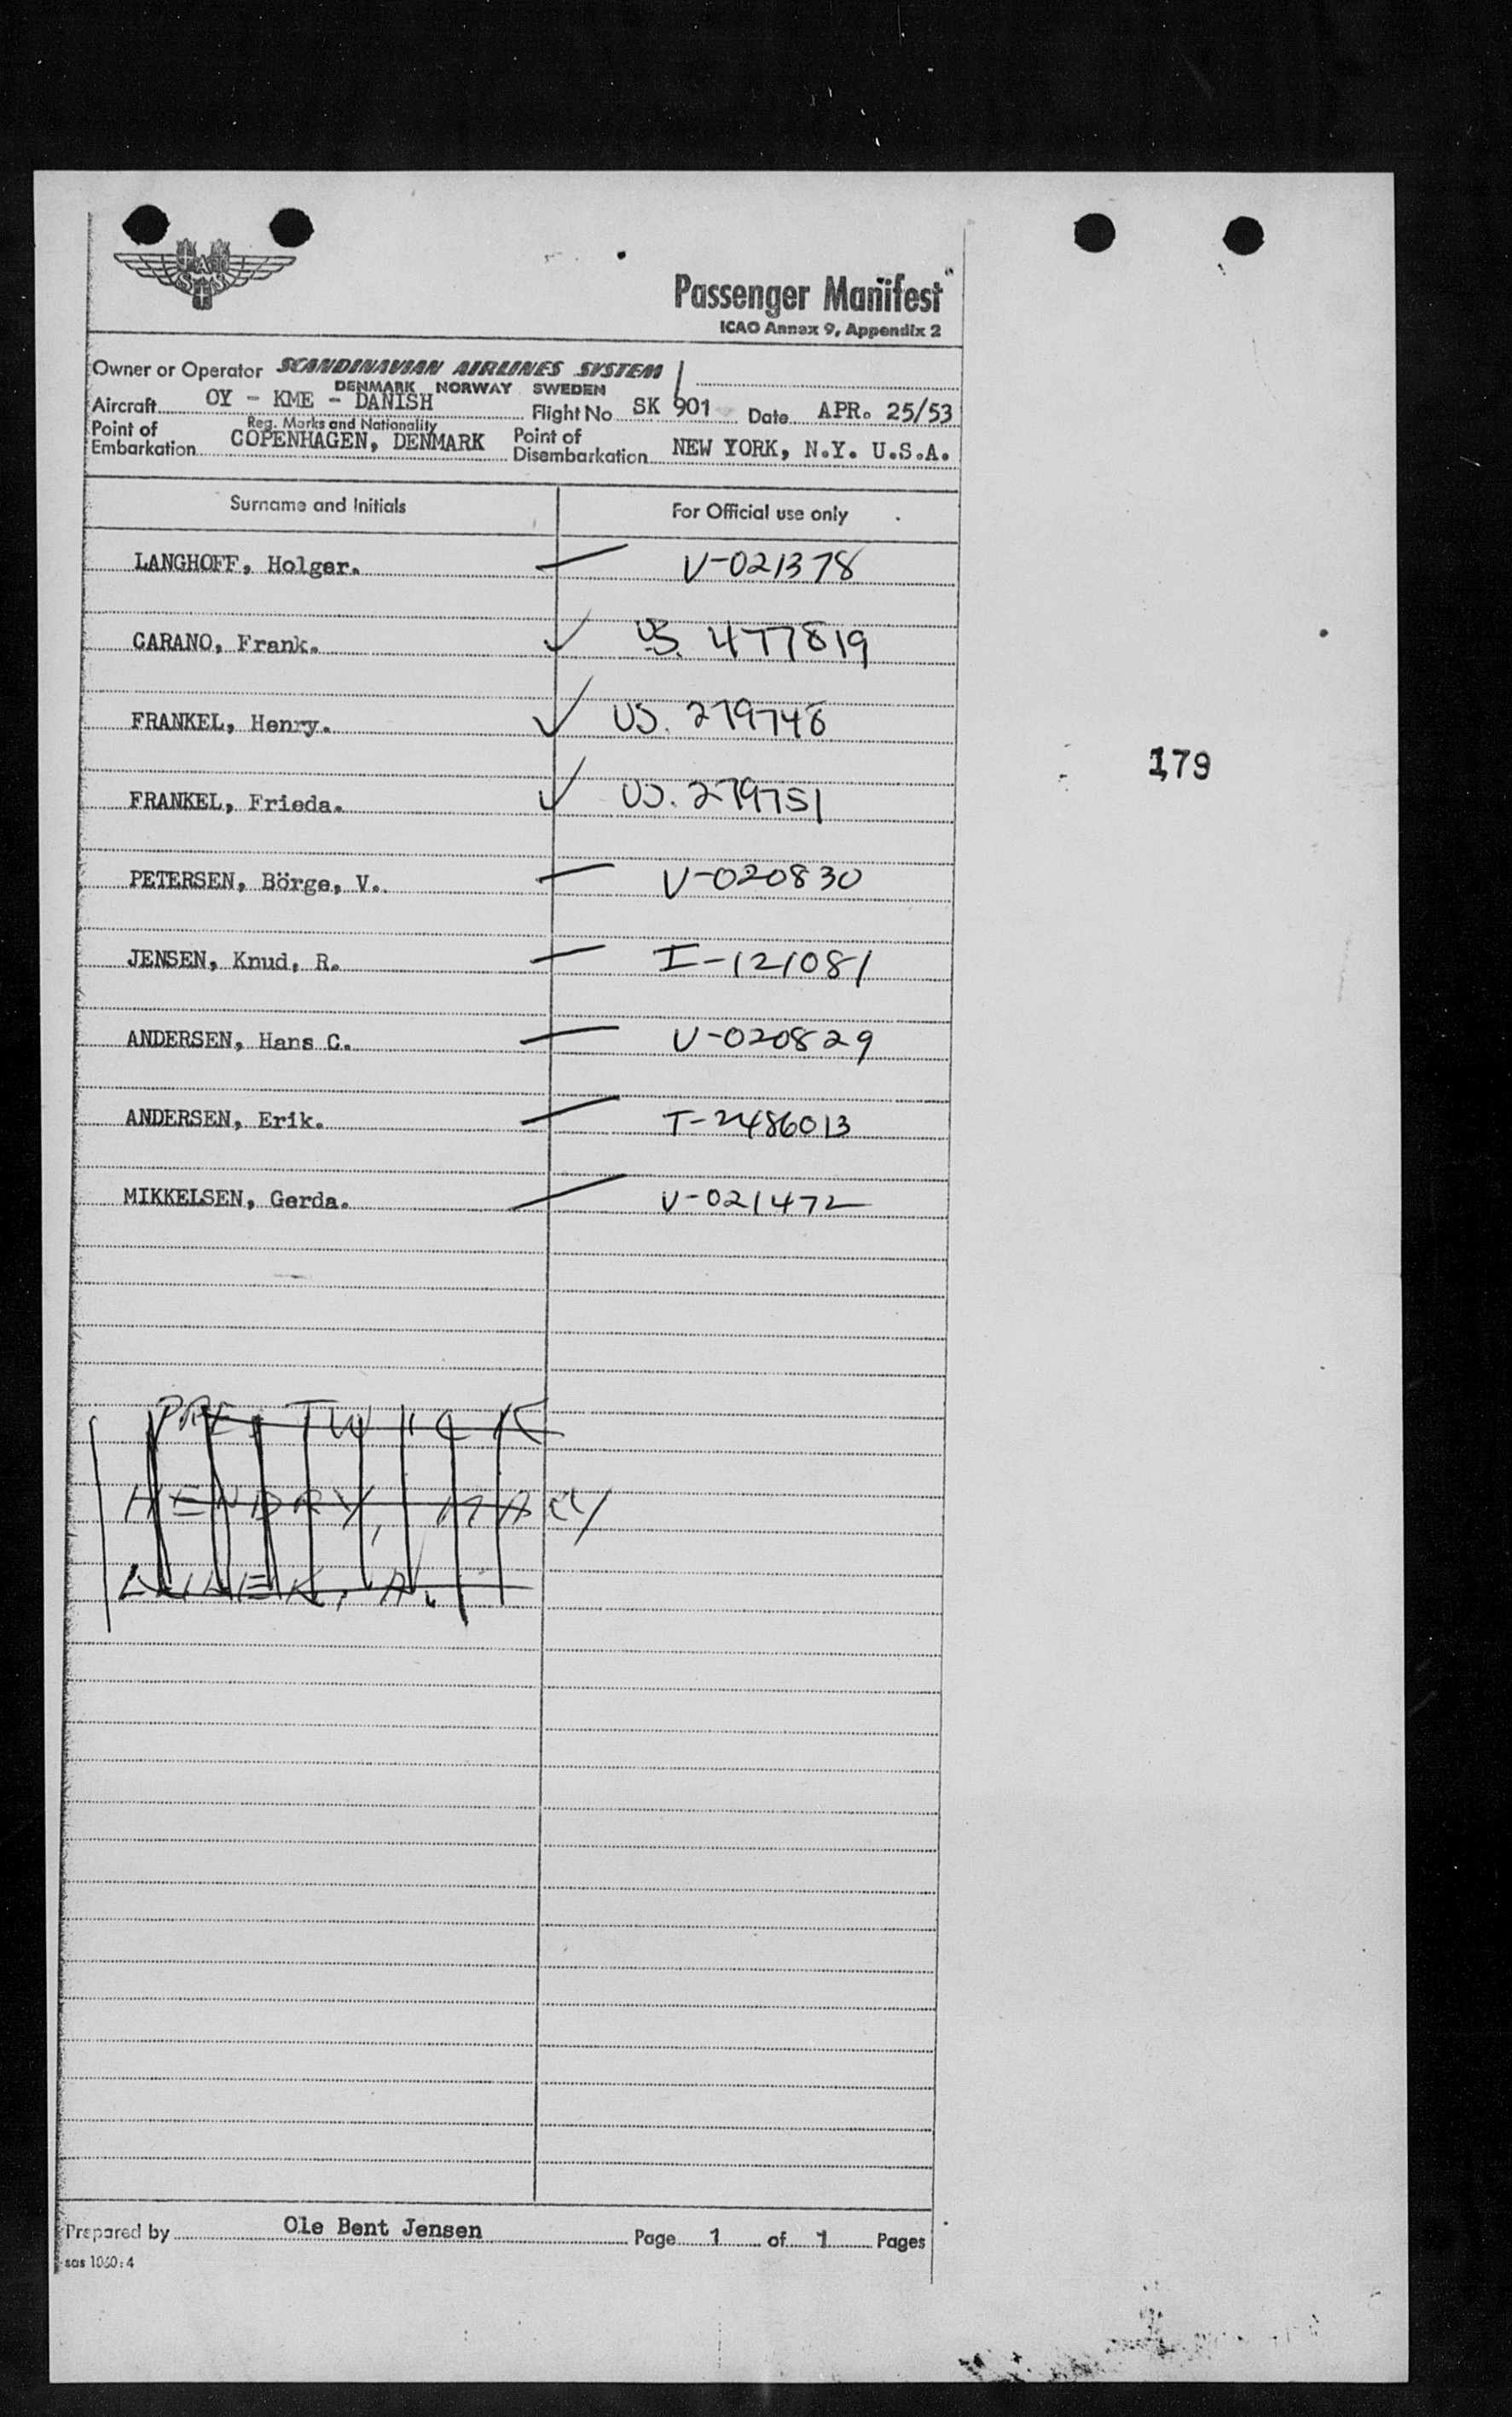 SAS
Passenger Manifest
ICAO Annex 9, Appendix 2
Owner or Operator SCANDINAVIAN AIRLINES SYSTEM
DENMARK NORWAY SWEDEN
Aircraft OY - KME - DANISH Flight No SK 901 Date APR. 25/53
Reg. Marks and Nationality
Point of Embarkation COPENHAGEN, DENMARK Point of Disembarkation NEW YORK, N.Y. U.S.A.
Surname and Initials For Official use only
LANGHOFF, Holger. V-021378
CARANO, Frank. US. 477819
FRANKEL, Henry. US. 279748
179
FRANKEL, Frieda. US. 279751
PETERSEN, Börge, V. V-020830
JENSEN, Knud, R. I-121081
ANDERSEN, Hans C. V-020829
ANDERSEN, Erik. T-2486013
MIKKELSEN, Gerda. V-021472
PRESTWICK
HENDRY, MARY
Prepared by Ole Bent Jensen Page 1 of 1 Pages
sas 1060:4